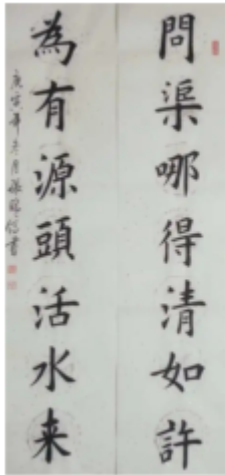 問渠哪得清如許
為有源頭活水来
庚寅年冬月
書